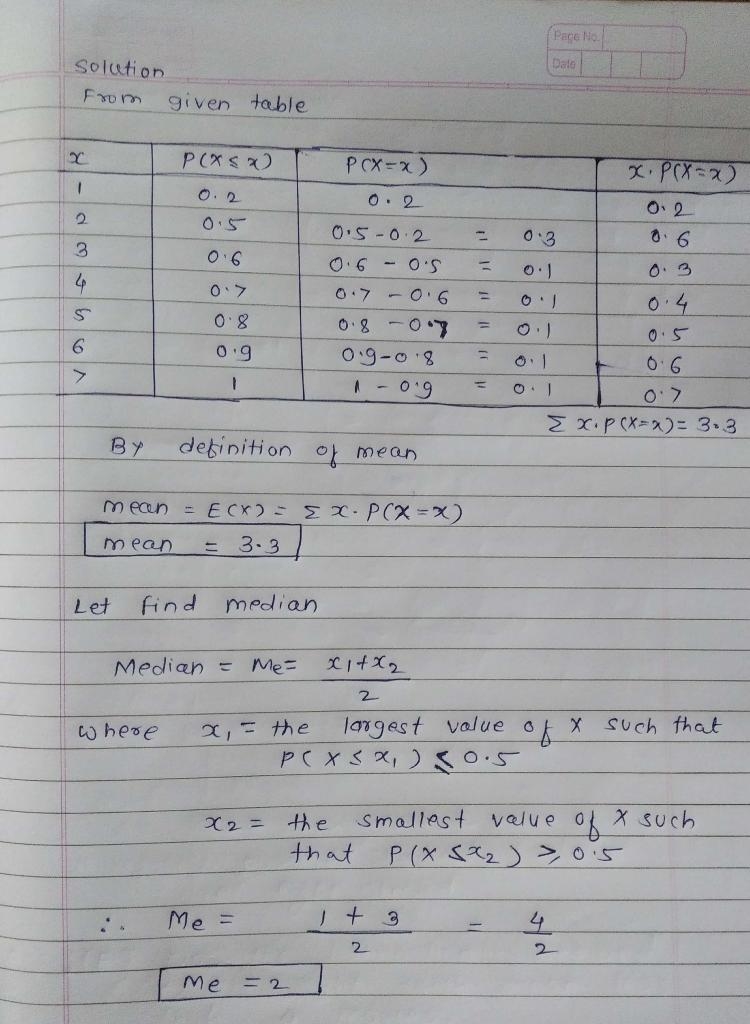 Page No.
Date
Solution
From given table
x P(X ≤ x) P(X=x) x. P(X=x)
1 0.2 0.2 0.2
2 0.5 0.5-0.2 = 0.3 0.6
3 0.6 0.6 - 0.5 = 0.1 0.3
4 0.7 0.7 - 0.6 = 0.1 0.4
5 0.8 0.8 - 0.7 = 0.1 0.5
6 0.9 0.9-0.8 = 0.1 0.6
7 1 1 - 0.9 = 0.1 0.7
Σ x.P(X=x)= 3.3
By definition of mean
mean = E(X) = Σ x. P(X=x)
mean = 3.3
Let find median
Median = Me= x1+x2
2
where x1 = the largest value of X such that
P(X ≤ x1) ≤ 0.5
x2 = the smallest value of X such
that P(X ≤x2) ≥ 0.5
∴ Me = 1 + 3 = 4
2 2
Me = 2